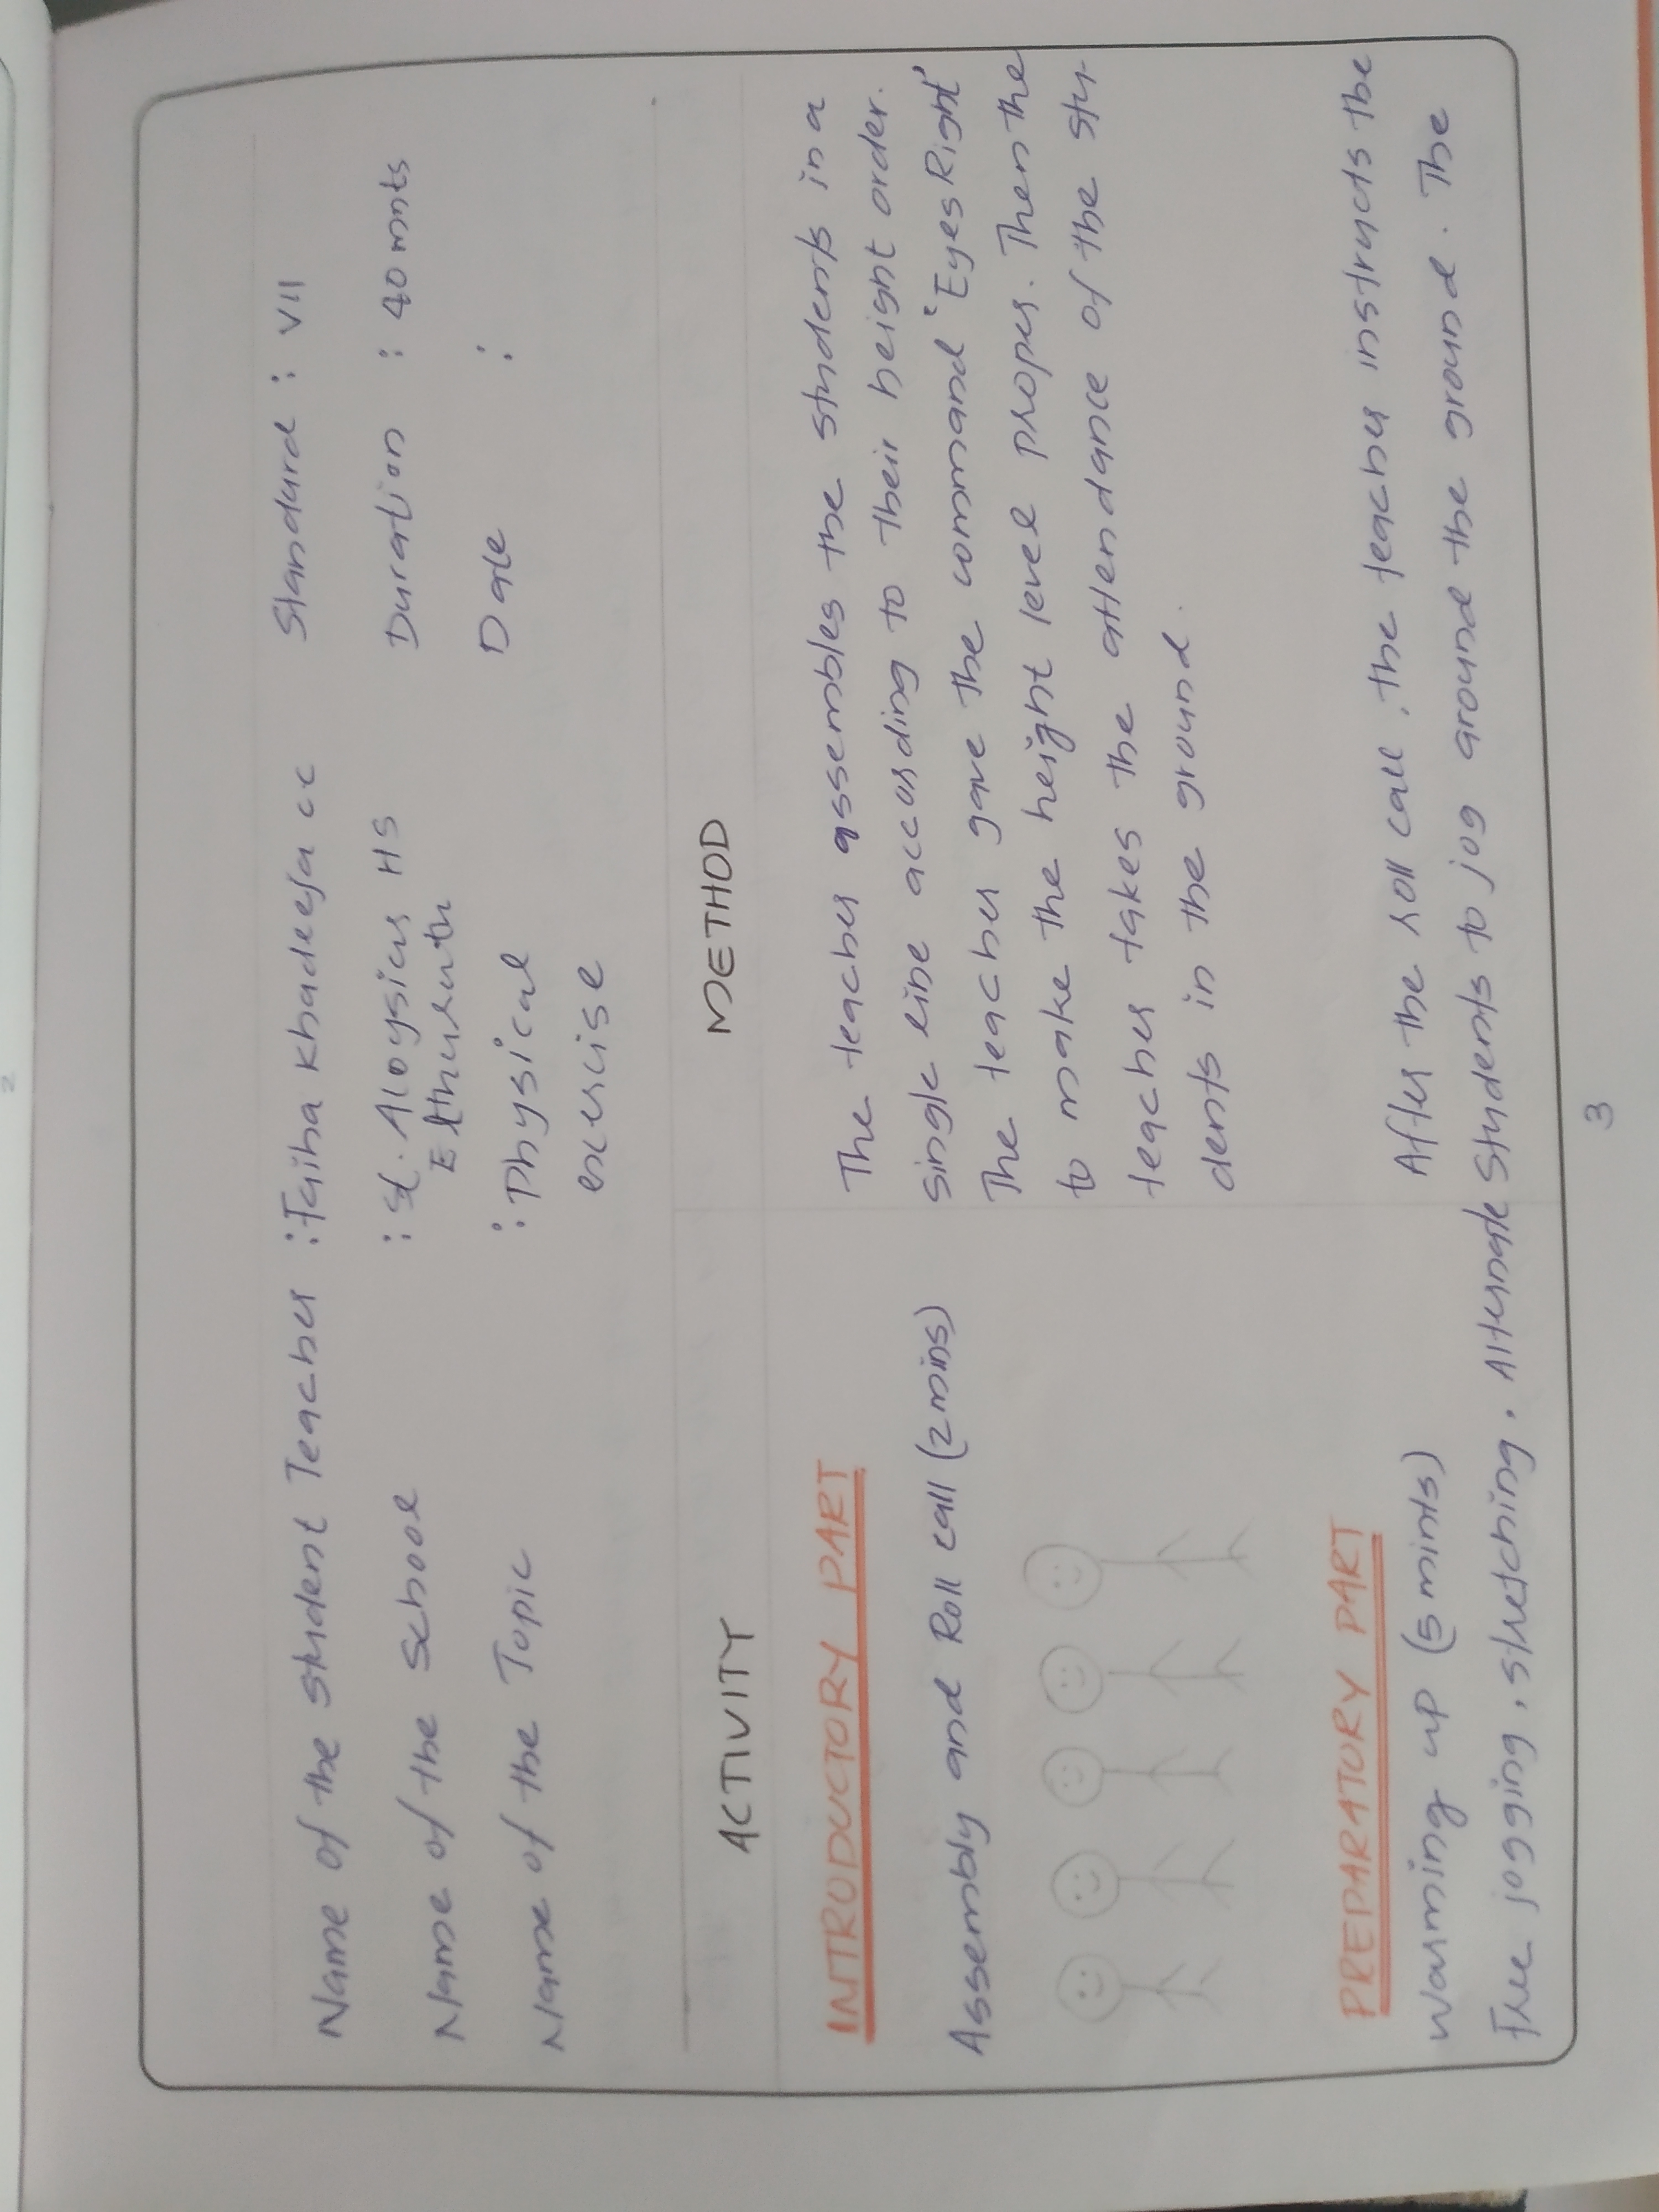 Name of the Student Teacher : Taiba Khadeeja cc Standard : VII
Name of the School : St. Aloysius HS Duration : 40 mnts
Elthuruth
Name of the Topic : Physical Date :
exercise
ACTIVITY METHOD
INTRODUCTORY PART
The teacher assembles the students in a
Assembly and Roll call (2 mins) single line according to their height order.
The teacher gave the command 'Eyes Right'
to make the height level proper. Then the
teacher takes the attendance of the stu-
dents in the ground.
PREPARATORY PART
Warming up (5 mints) After the roll call, the teacher instructs the
Free jogging, stretching. Alternate Students to jog around the ground. The
3
2